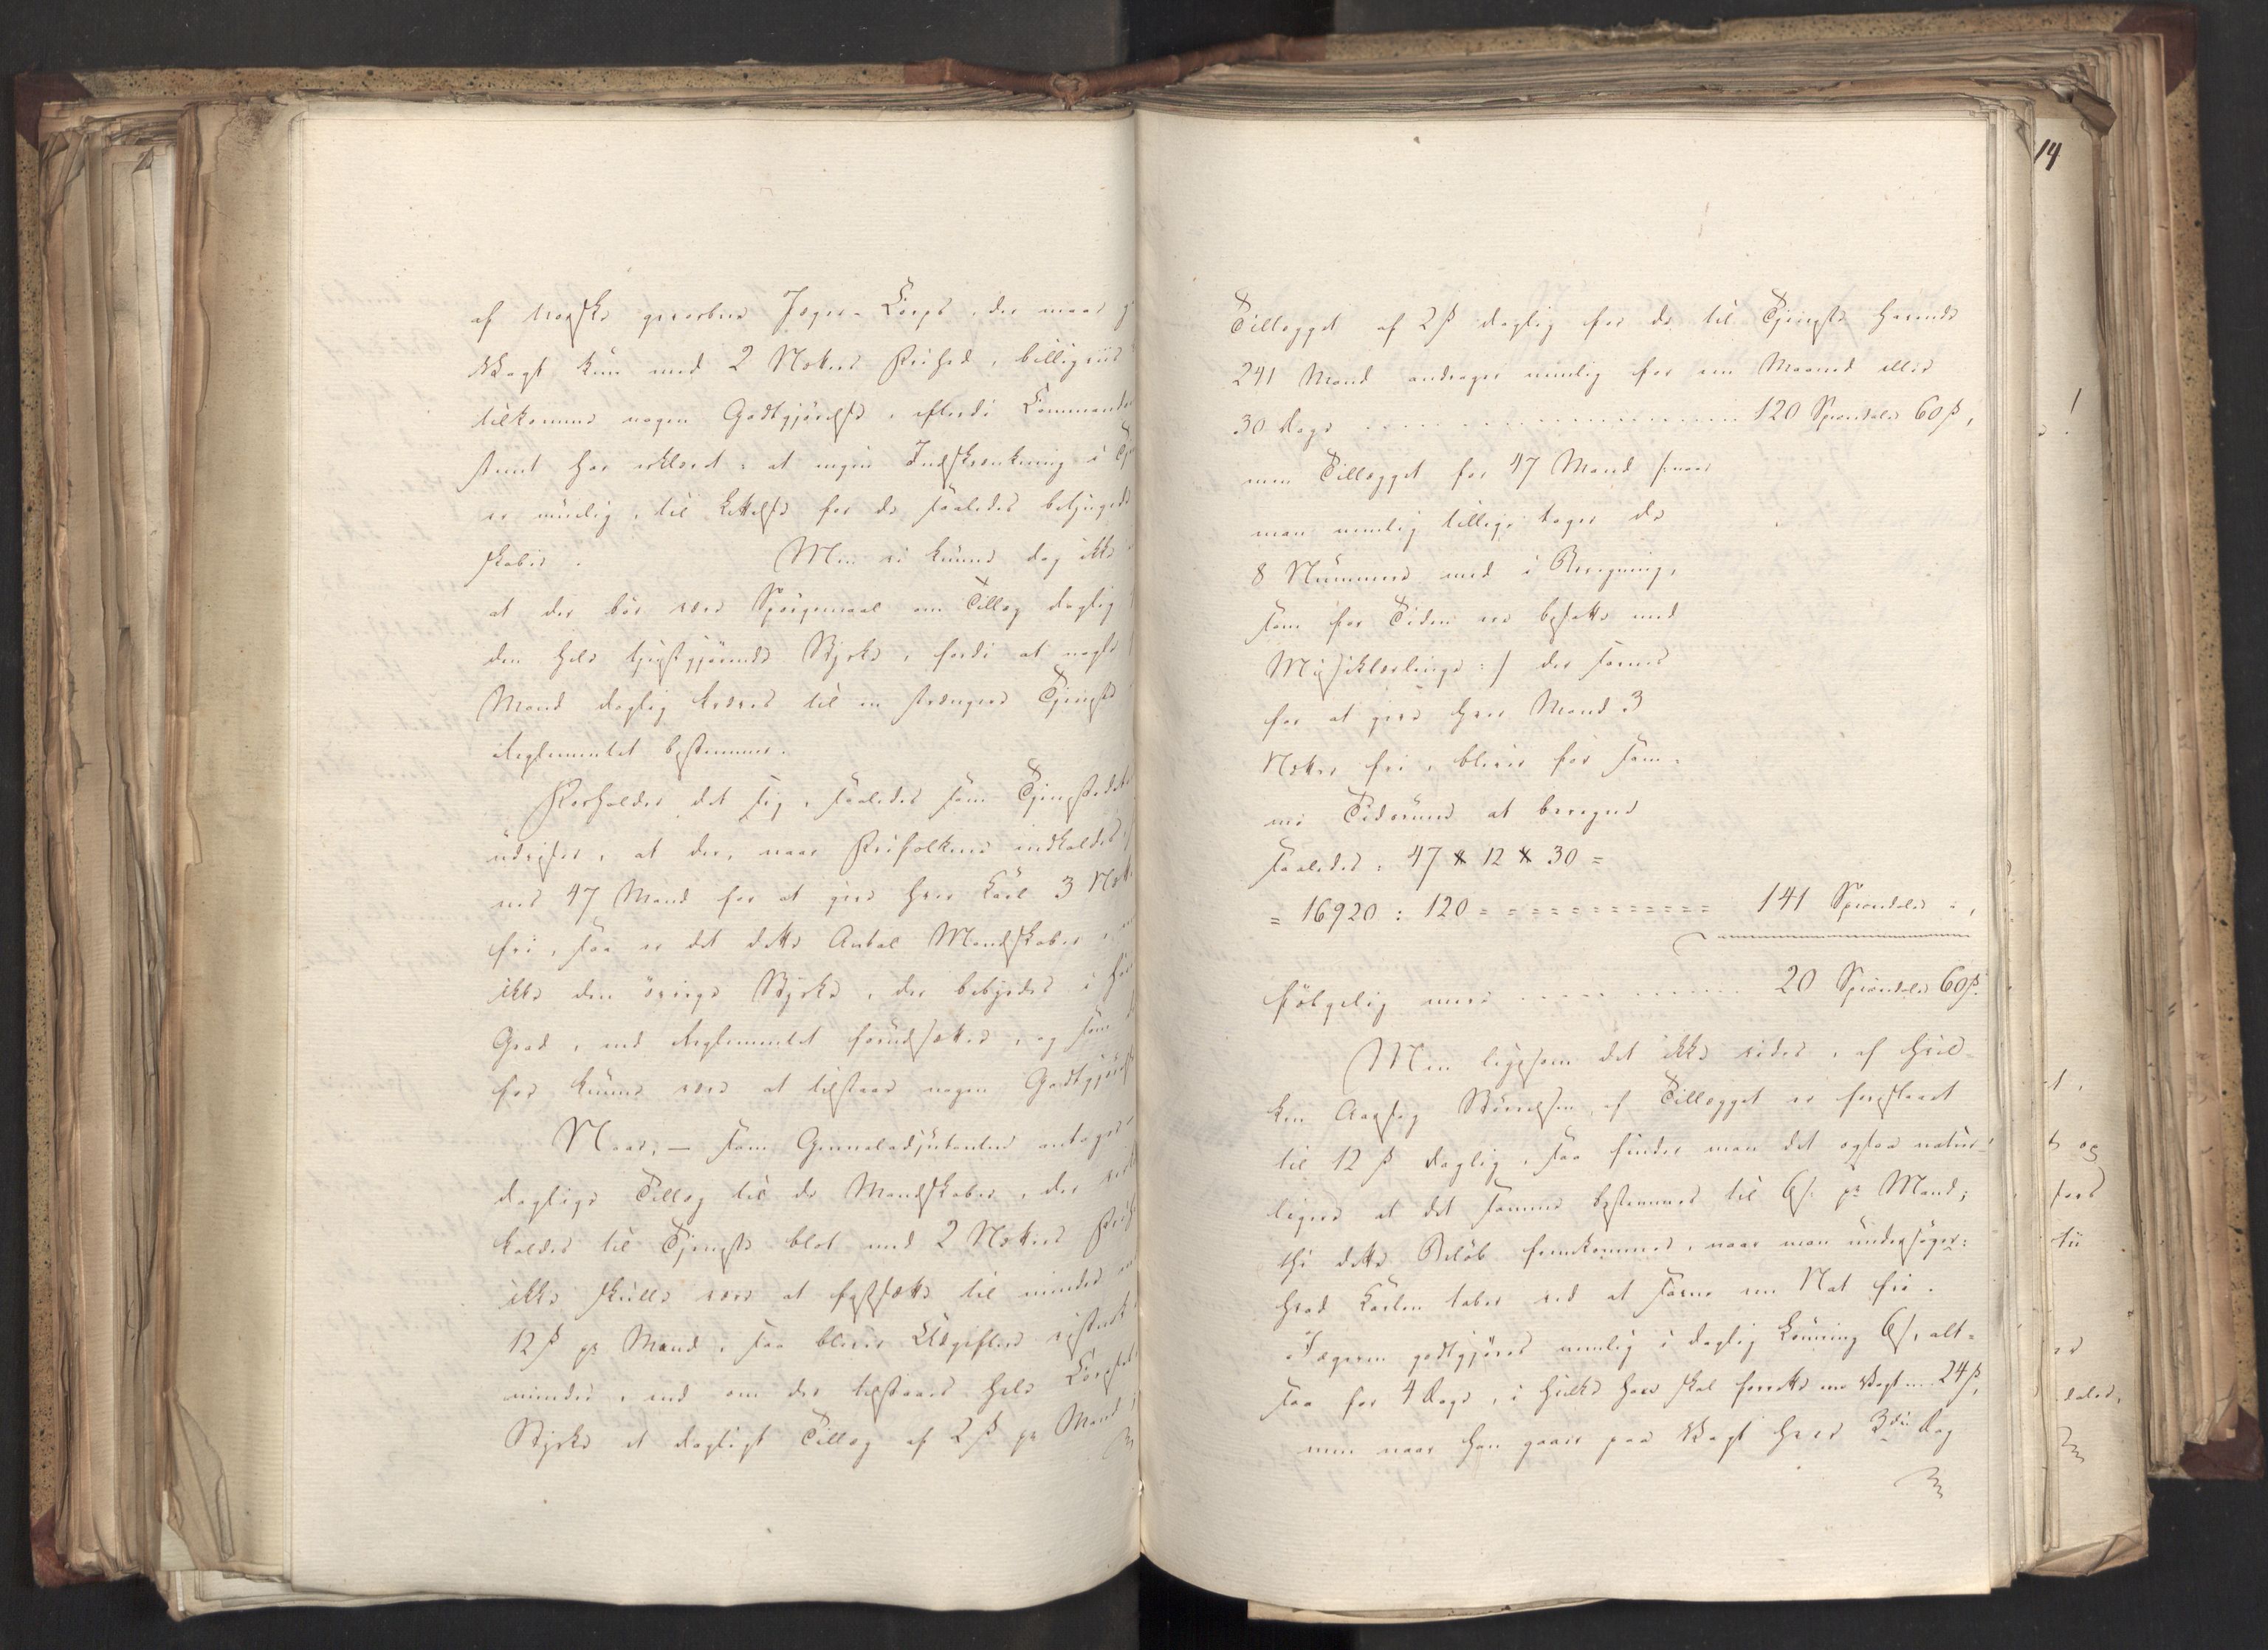 af norske gevorbne Jæger-Corps, der maae g
Vagt kun med 2 Nætters Frihed, billigviis
tilkomme nogen Godtgjörelse, efterdi Commande
skuet har erklæret: at ingen Indskrænkning i Tje
er muelig, til Lettelse for de saaledes betyngede
skaber. Men vi kunne dog ikke
at der bör være Spörgsmaal om Tillæg daglig
den hele tjenstgjörende Styrke, fordi at nogle
Mand daglig kræves til en strængere Tjeneste
Reglementet bestemmer.
Forholder det sig, saaledes som Tjenestedet
udviser, at der, naar Frifolkene indkaldes,
nes 47 Mand for at give hver Karl 3 Næt.
fri, saa er det dette Antal Mandskaber
ikke den övrige Styrke, der bebyrdes i höi
Grad, end Reglementet forudsætter, og som
for kunne være at tilstaae nogen Godtgjörels
Naar, — som Generaladjutanten antager
daglige Tillæg til de Mandskaber, der
kaldes til Tjeneste blot med 2 Nætters Frih
ikke skulle være at fastsætte til mindre en
12 ß pr Mand, saa bliver Udgiften
mindre, end om der tilstaaes hele Corpsets
Styrke et dagligt Tillæg af 2 ß pr Mand;
14
Tillægget af 2 ß daglig for de til Tjeneste havende
241 Mand andrager nemlig for en Maaned eller
30 Dage ........ 120 Speciedaler 60 ß,
men Tillægget for 47 Mand /: naar
man nemlig tillige tager de
8 Nummere med i Beregning,
som for Tiden ere besatte med
Musiklærlinge :/ der savnes
for at give hver Mand 3
Nætter fri, bliver for sam-
me Tidsrum at beregne
saaledes: 47 x 12 x 30 =
= 16920 : 120 = = = = = = 141 Speciedaler „,
fölgelig mere ........ 20 Speciedaler 60 ß.
Men ligesom det ikke vides, af hvil-
ken Aarsag Störrelsen af Tillægget er foreslaaet
til 12 ß daglig, saa finder man det ogsaa natur-
ligere at det samme bestemmes til 6 ß. pr Mand;
thi dette Belöb fremkommer, naar man undersöger:
hvad Karlen taber ved at savne en Nat fri.
Jægeren godtgjöres nemlig i daglig Lönning 6 ß, alt-
saa for 4 Dage, i hvilke han skal forrette en Vagt ... 24 ß,
men naar han gaaer paa Vagt hver 3die Dag